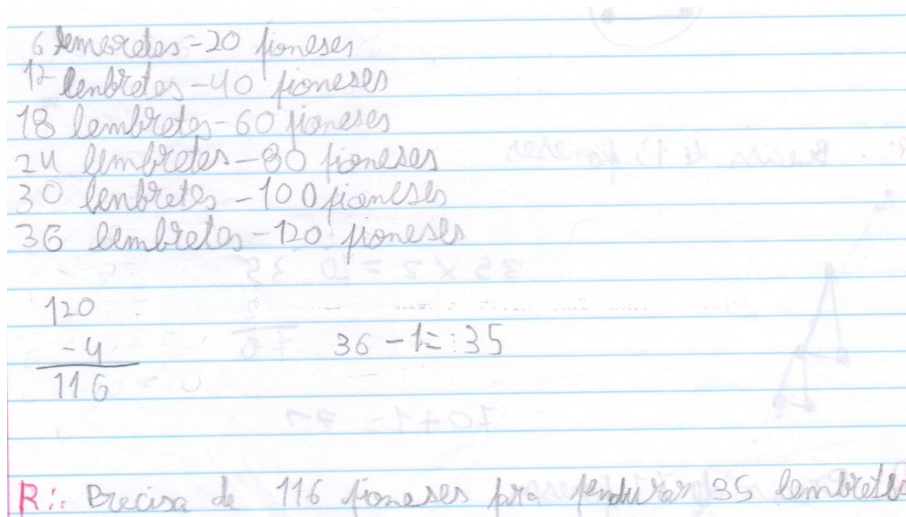 6 lembretes - 20 pioneses
12 lenbretes - 40 pioneses
18 lembretes - 60 pioneses
24 lembretes - 80 pioneses
30 lenbretes - 100 pioneses
36 lembretes - 120 pioneses
120
- 4
116
36 - 1 = 35
R: Precisa de 116 pioneses pra pendurar 35 lembretes